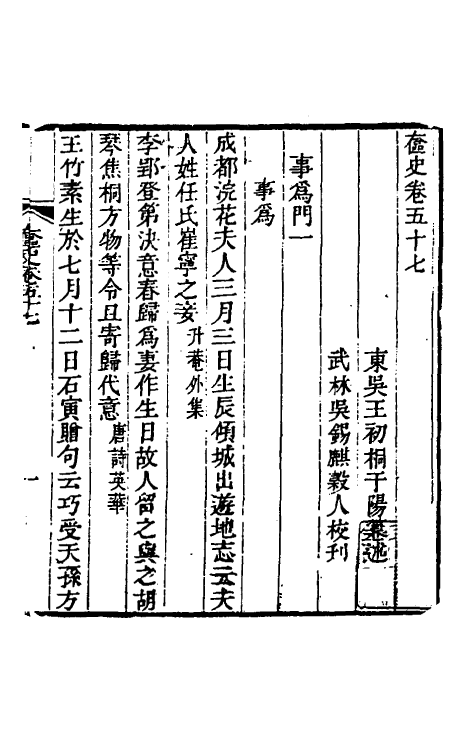 奩史卷五十七
東吳王初桐于陽纂述
武林吳錫麒穀人校刊
事爲門一
事爲
成都浣花夫人三月三日生辰傾城出遊地志云夫
人姓任氏崔寧之妾升菴外集
李郢登第決意春歸爲妻作生日故人留之與之胡
琴焦桐方物等令且寄歸代意唐詩英華
王竹素生於七月十二日石寅贈句云巧受天孫方
奩史卷五十七
一